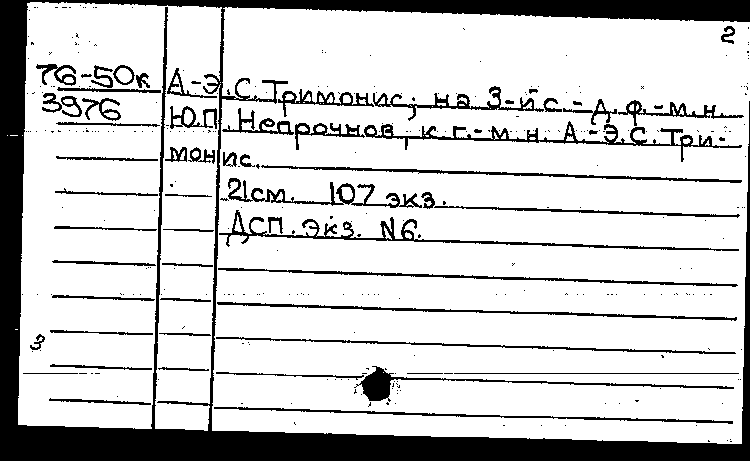 2
76-50к А.-Э.С. Тримонис; на 3-й с.- д.ф.-м.н.
3976 Ю.П. Непрочнов, к.г.-м.н. А.-Э.С. Три-
монис.
21см. 107 экз.
ДСП. Экз. N6.
3